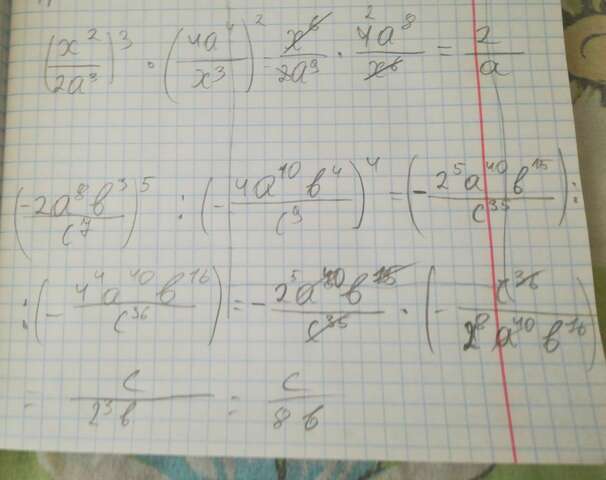 (x²/2a³)³ · (4a⁴/x³)² = x⁶/2a⁹ · 4a⁸/x⁶ = 2/a
(-2a⁸b³/c⁷)⁵ : (-4a¹⁰b⁴/c⁹)⁴ = (-2⁵a⁴⁰b¹⁵/c³⁵) :
: (-4⁴a⁴⁰b¹⁶/c³⁶) = -2⁵a⁴⁰b¹⁵/c³⁵ · (-c³⁶/2⁸a⁴⁰b¹⁶)
= c/2³b = c/8b